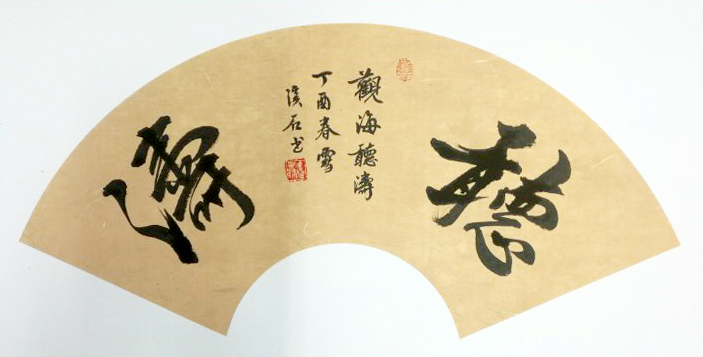 聽濤
觀海聽濤
丁酉春雪
溪石书